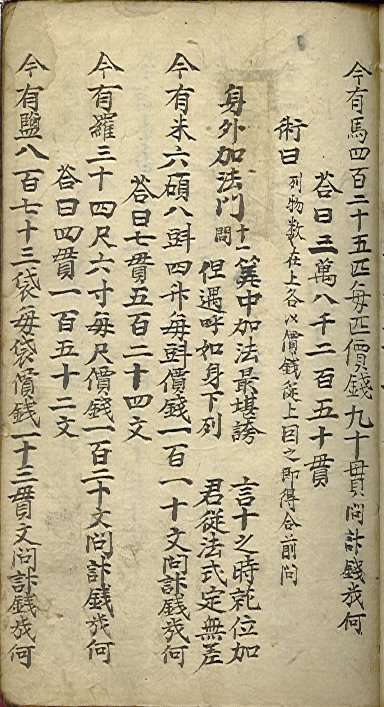 今有馬四百二十五匹每匹價錢九十貫问計錢㡬何
荅曰三萬八千二百五十貫
術曰列物數在上各以價錢從上因之即得合前问
身外加法门十一問
筭中加法最堪誇 言十之時就位加
但遇呼如身下列 君從法式定無差
今有米六碩八㪷四升每㪷價錢一百一十文问計錢㡬何
荅曰七貫五百二十四文
今有羅三十四尺六寸每尺價錢一百二十文问計錢㡬何
荅曰四貫一百五十二文
今有鹽八百七十三袋每袋價錢一十三貫文问計錢㡬何